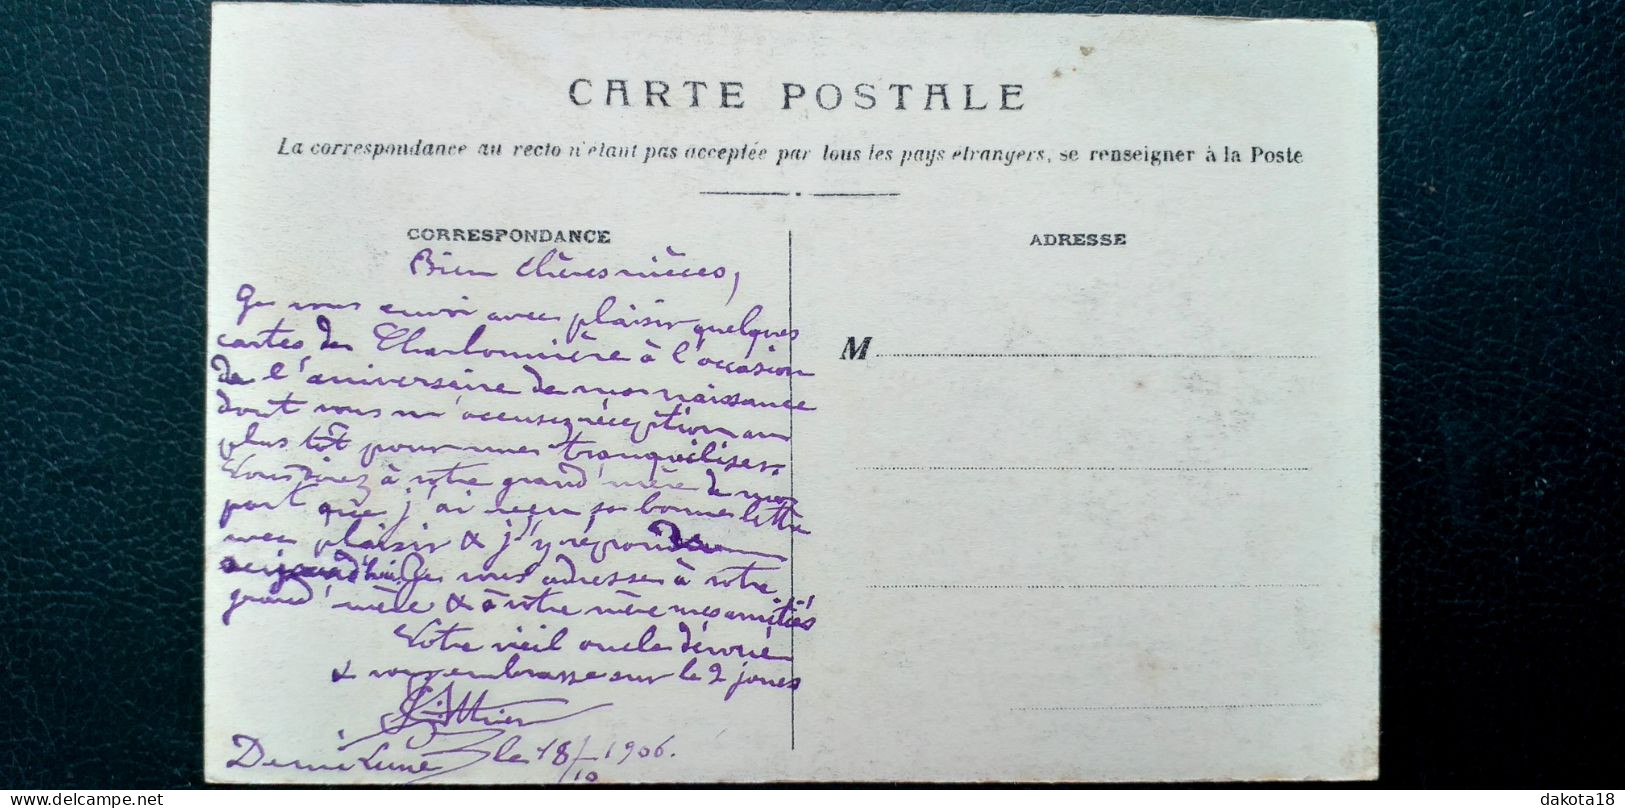 CARTE POSTALE
La correspondance au recto n'étant pas acceptée par tous les pays étrangers, se renseigner à la Poste
CORRESPONDANCE
ADRESSE
Bien chères nièces,
Je vous envoi avec plaisir quelques
cartes de Charbonnière à l'occasion
de l'aniversaire de ma naissance
dont vous m'accusez réception au
plus tôt pour me tranquiliser.
Vous direz à votre grand'mère de ma
part que j'ai reçu sa bonne lettre
avec plaisir & j'y répond
aujourd'hui. Je vous adresse à votre
grand'mère & à votre mère mes amitiés
Votre vieil oncle dévoué
& vous embrasse sur le 2 joues
Demi Lune le 18/10 1906.
M
www.delcampe.net
dakota18